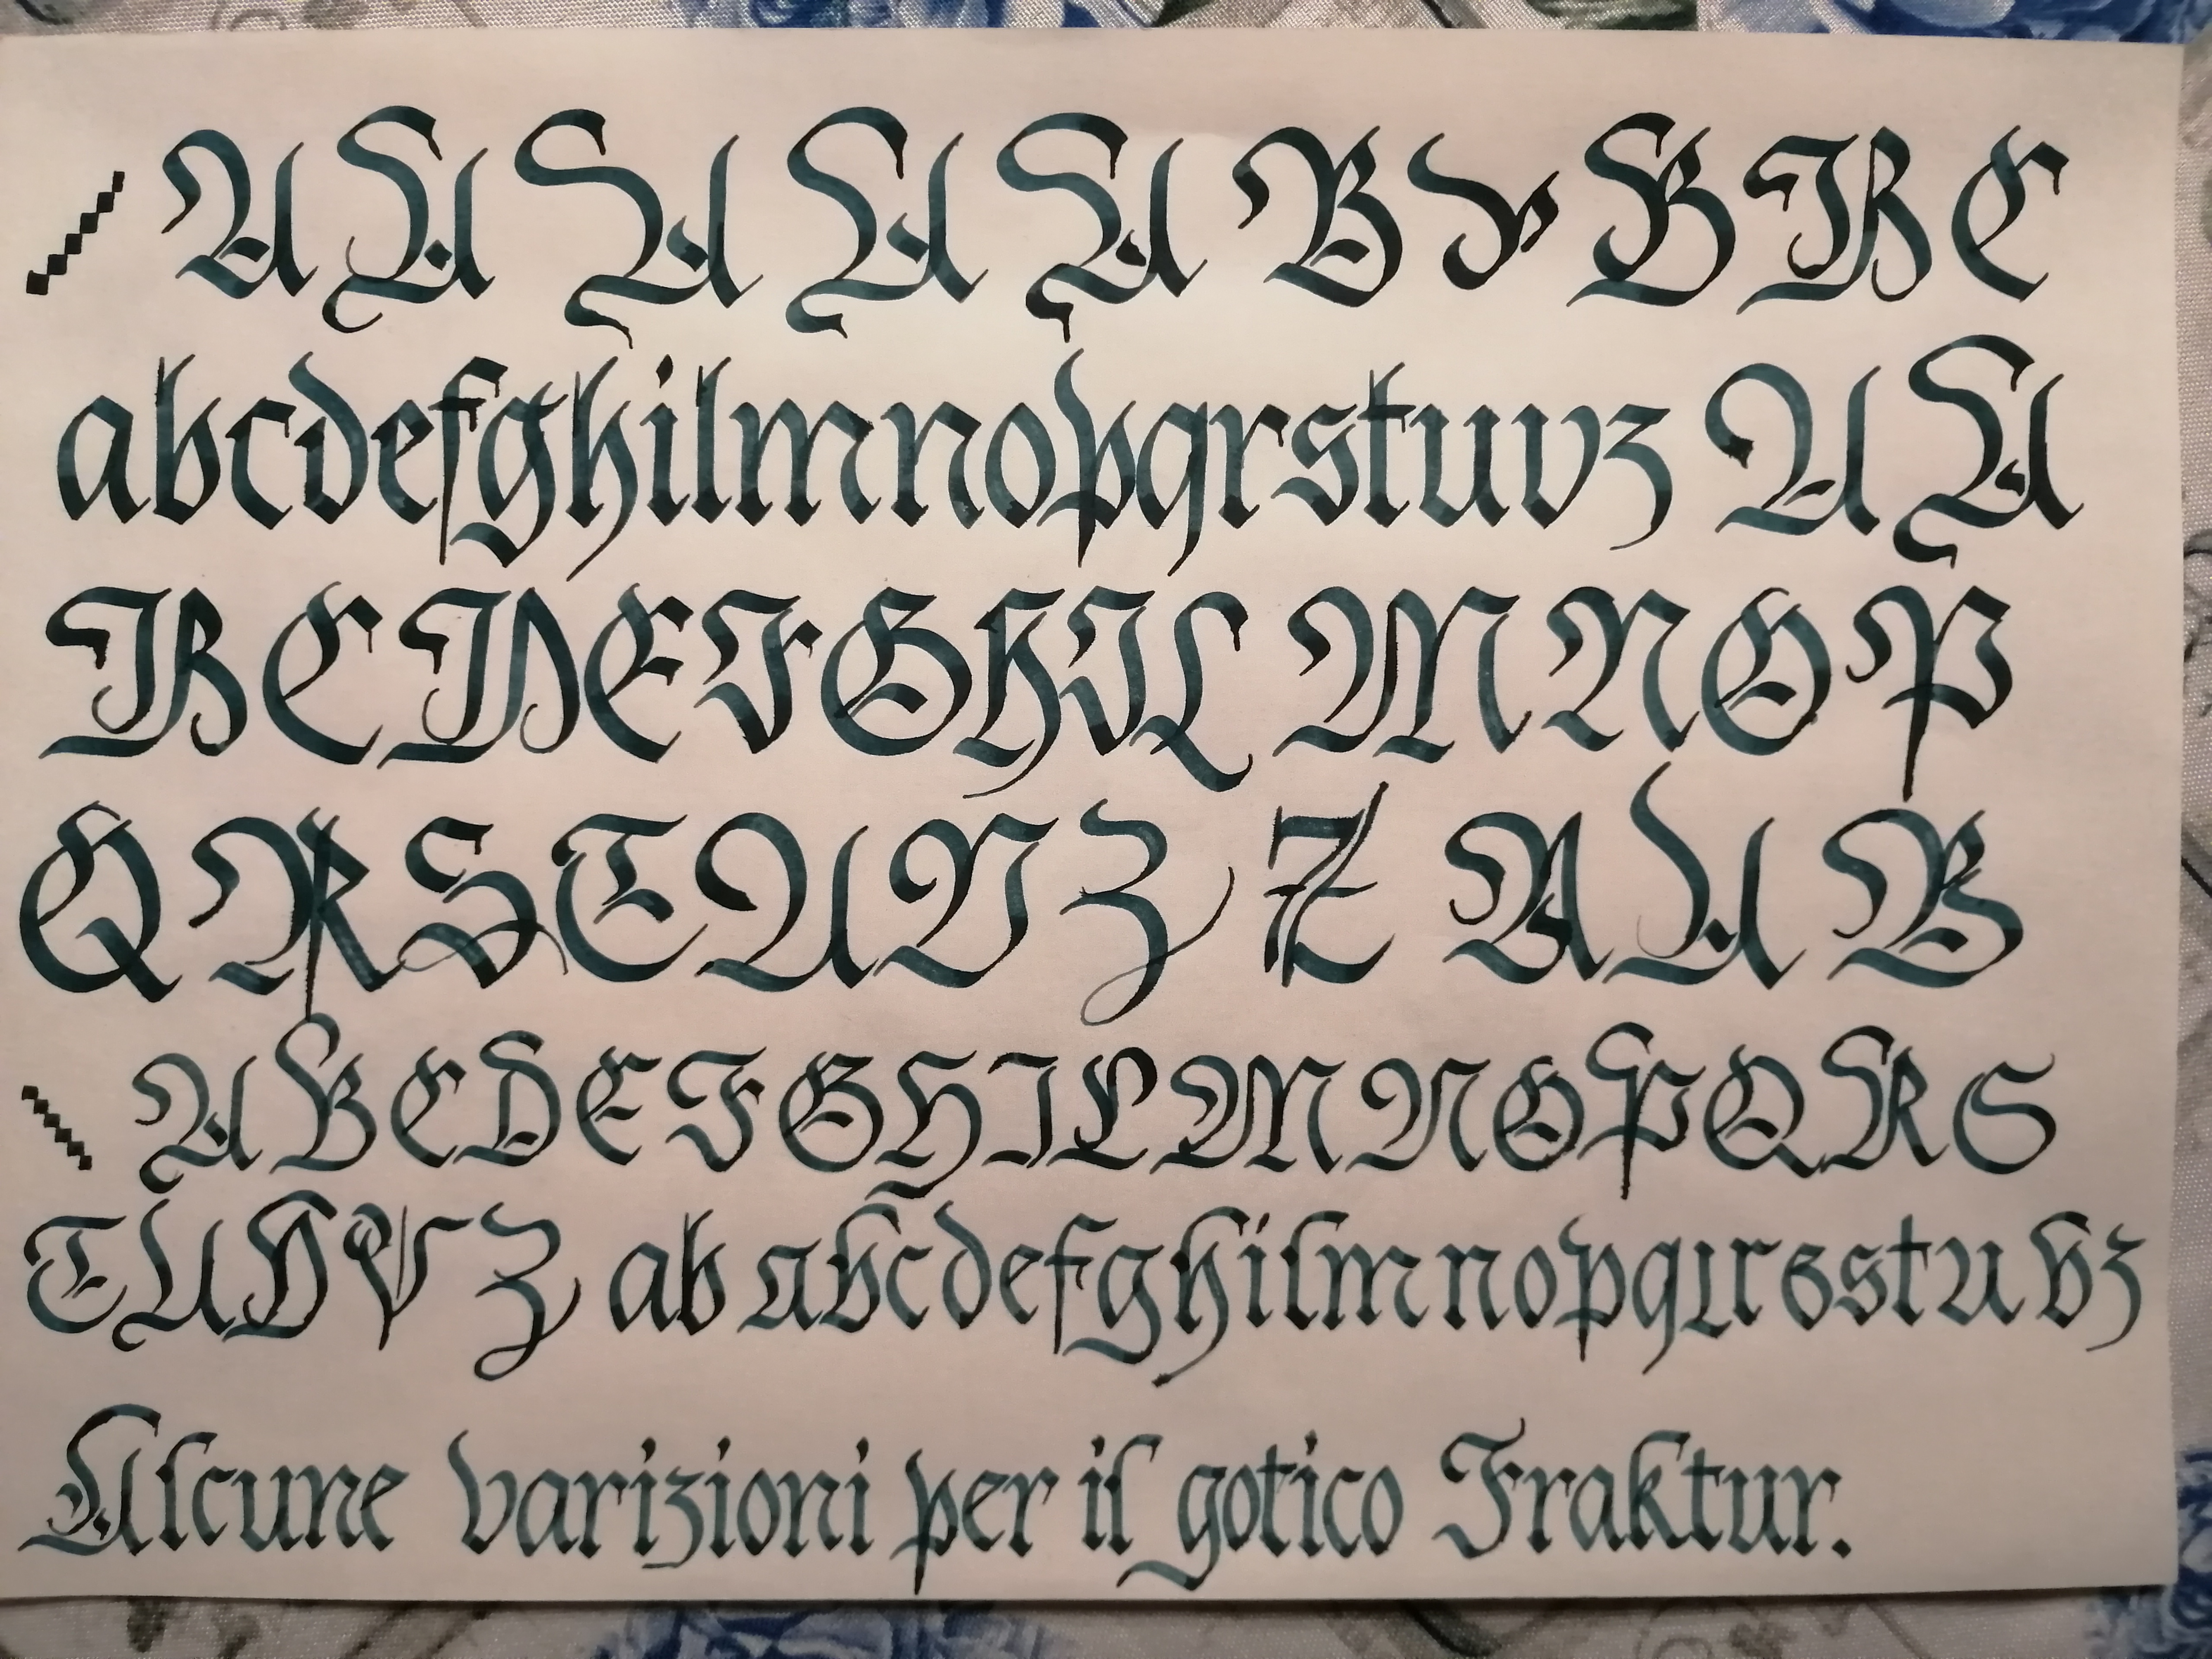 A A A A A B B B B C
abcdefghilmnopqrstuvz A A
B C D E F G H I L M N O P
Q R S T U V Z Z A A B
A B C D E F G H I L M N O P Q R S
T U V V Z ab abcdefghilmnopqrrsstuvz
Alcune varizioni per il gotico Fraktur.